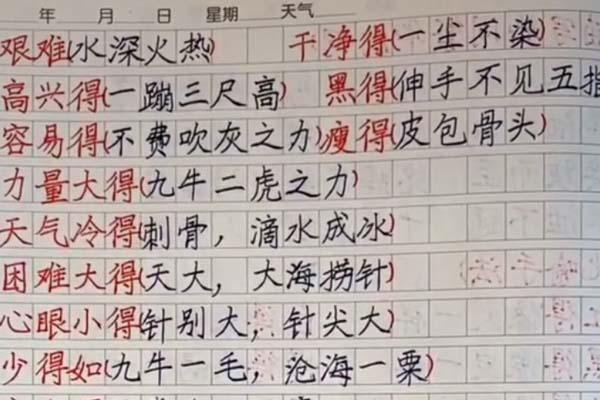 年 月 日 星期 天气
艰难(水深火热) 干净得(一尘不染)
高兴得(一蹦三尺高) 黑得(伸手不见五指
容易得(不费吹灰之力)瘦得(皮包骨头)
力量大得(九牛二虎之力)
天气冷得(刺骨，滴水成冰)
困难大得(天大，大海捞针)
心眼小得(针别大，针尖大)
少得如(九牛一毛，沧海一粟)